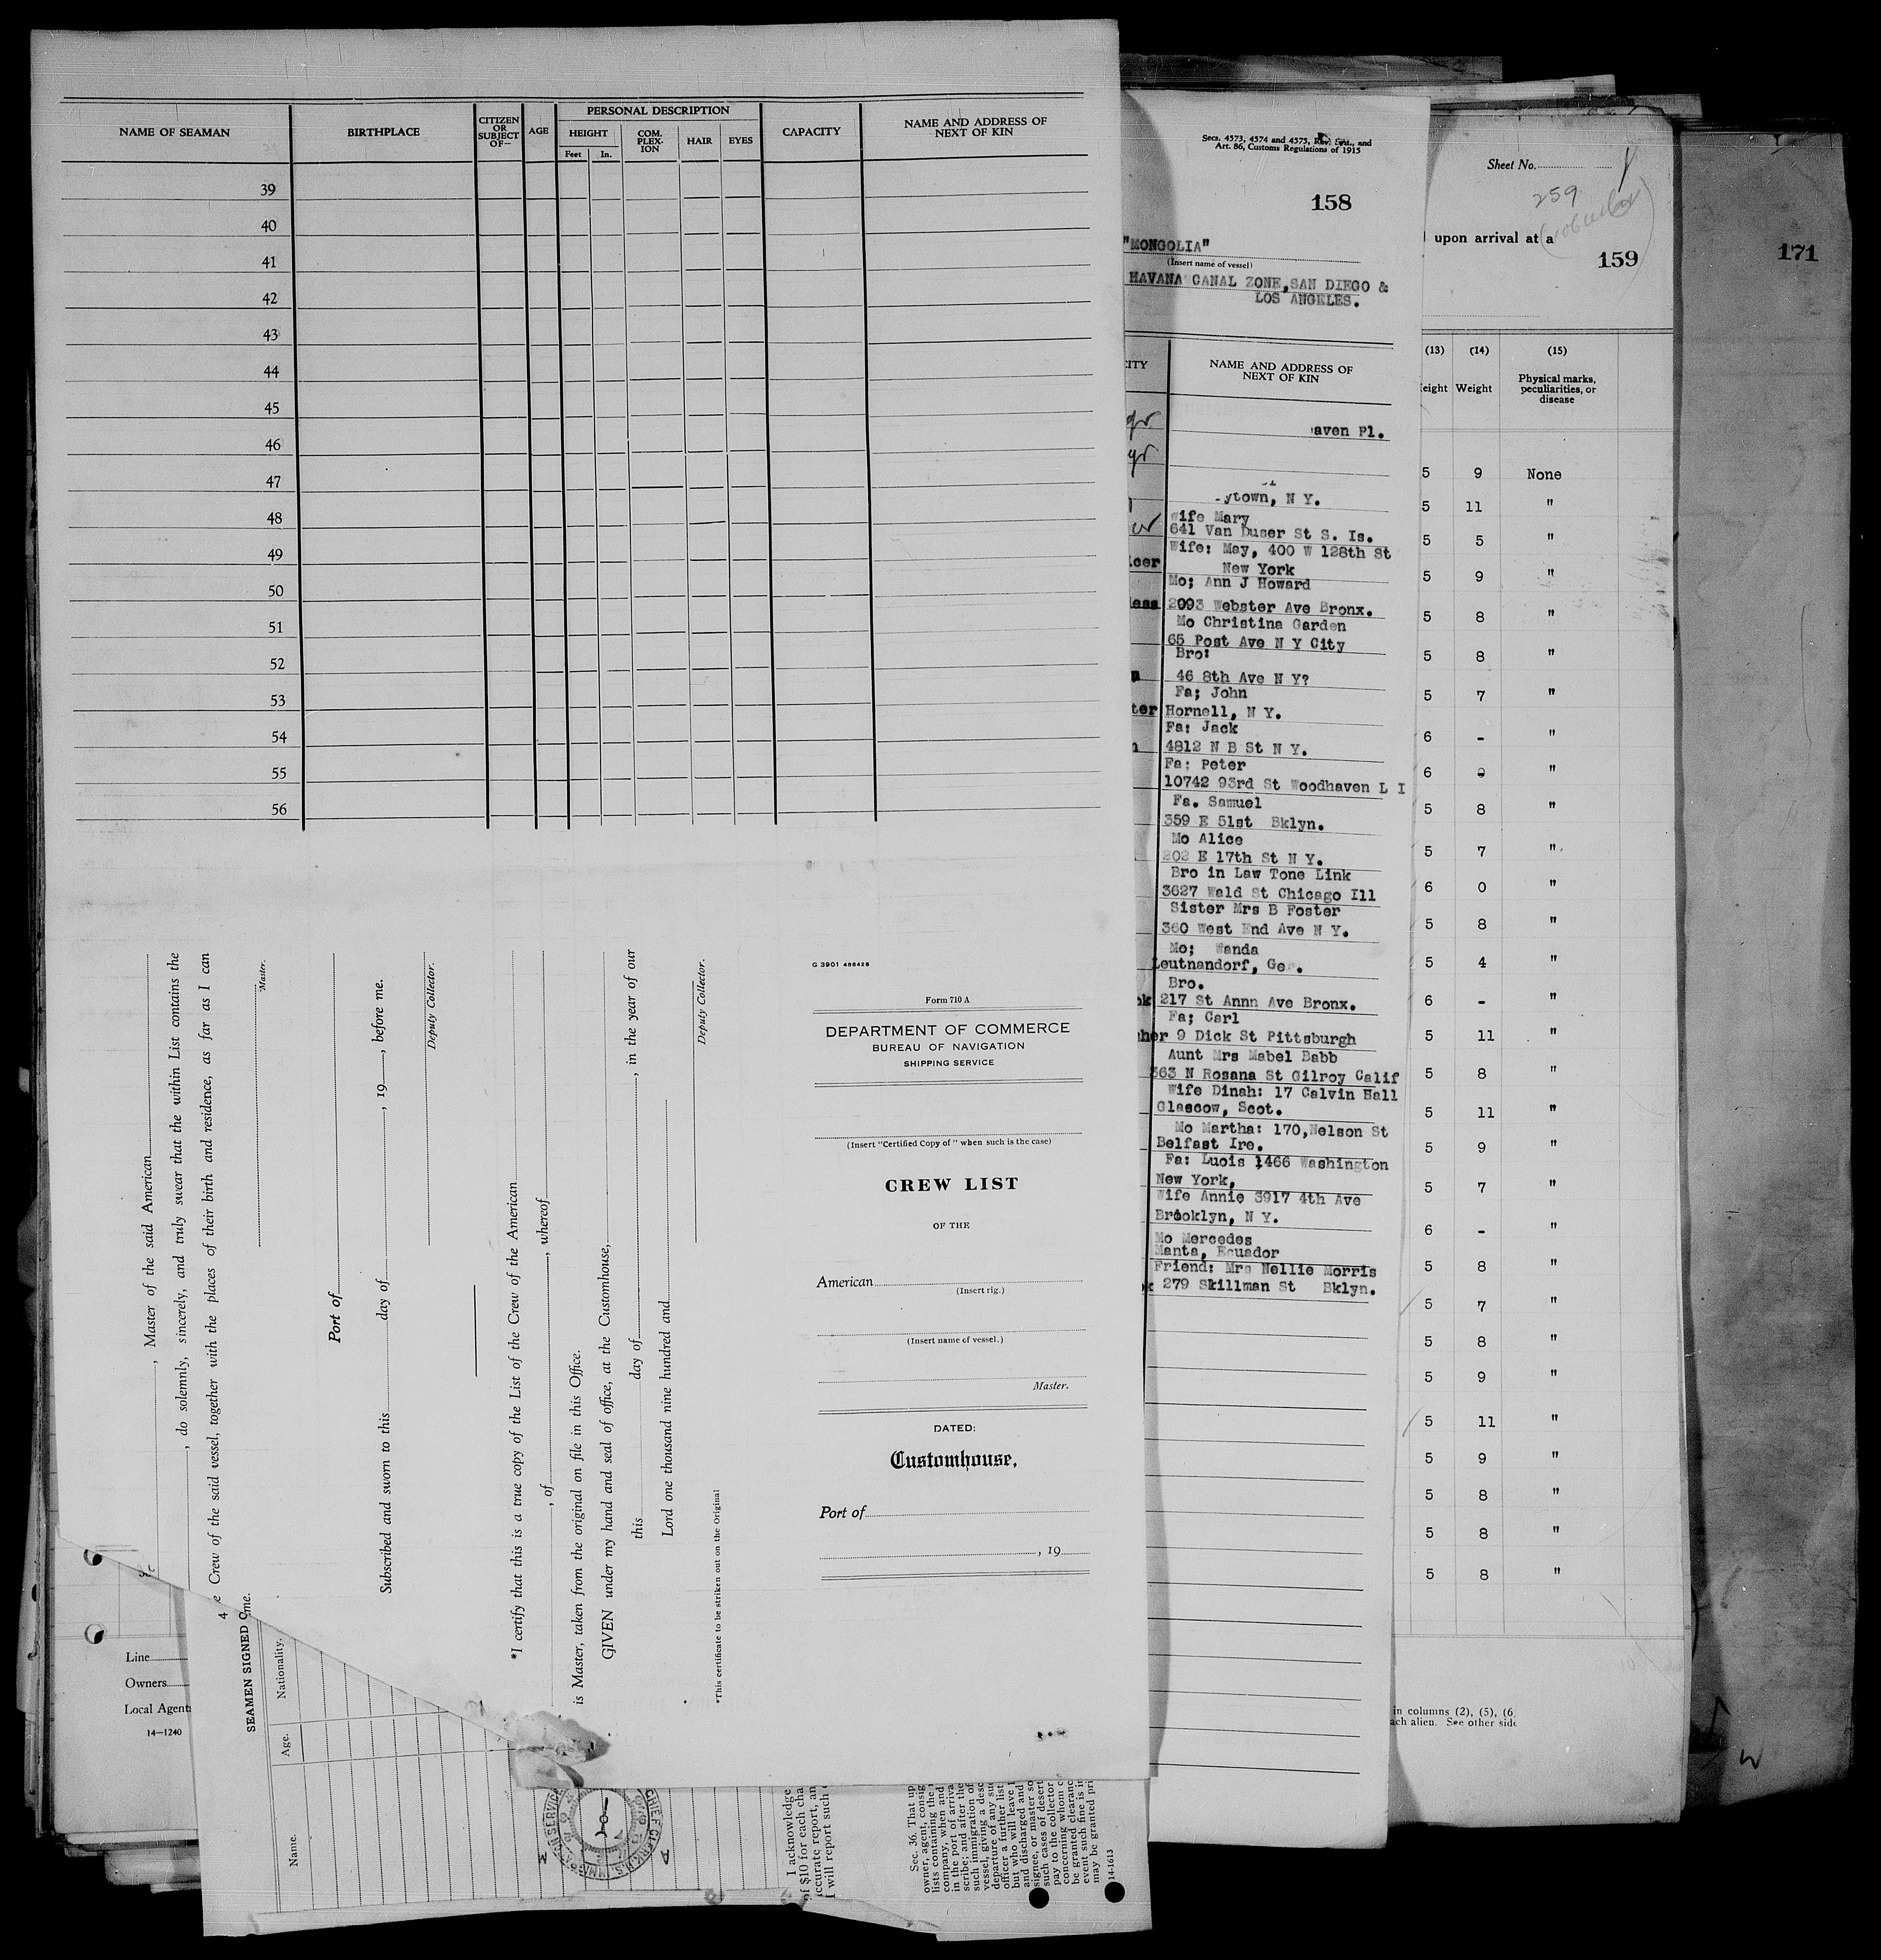 NAME OF SEAMAN
BIRTHPLACE
CITIZEN OR SUBJECT OF—
AGE
PERSONAL DESCRIPTION
HEIGHT
Feet
In.
COM. PLEX- ION
HAIR
EYES
CAPACITY
NAME AND ADDRESS OF NEXT OF KIN
39
40
41
42
43
44
45
46
47
48
49
50
51
52
53
54
55
56
, Master of the said American
, do solemnly, sincerely, and truly swear that the within List contains the
e Crew of the said vessel, together with the places of their birth and residence, as far as I can
Master.
Port of
Subscribed and sworn to this day of , 19 , before me.
Deputy Collector.
*I certify that this is a true copy of the List of the Crew of the American
, of , whereof
is Master, taken from the original on file in this Office.
GIVEN under my hand and seal of office, at the Customhouse,
this day of , in the year of our
Lord one thousand nine hundred and
Deputy Collector.
*This certificate to be striken out on the Original
G 3901 488428
Form 710 A
DEPARTMENT OF COMMERCE
BUREAU OF NAVIGATION
SHIPPING SERVICE
(Insert "Certified Copy of" when such is the case)
CREW LIST
OF THE
American
(Insert rig.)
(Insert name of vessel.)
Master.
DATED:
Customhouse,
Port of
, 19
Line
Owners
Local Agents
14—1240
4
SEAMEN SIGNED O
me.
Nationality.
Age.
Name.
I acknowledge
of $10 for each cha
accurate report, an
I will report such
Sec. 36. That up
owner, agent, consig
lists containing the
company, when and
in the port of arriva
scribe; and after the
such immigration of
vessel, giving a desc
departure of any su
officer a further list
but who will leave
and discharged and
signee, or master so
such cases of desert
pay to the collector
concerning whom c
be granted clearanc
event such fine is in
may be granted pri
14-1613
Secs. 4573, 4574 and 4575, Rev. Stat., and
Art. 86, Customs Regulations of 1915
158
"MONGOLIA"
(Insert name of vessel)
HAVANA CANAL ZONE,SAN DIEGO &
LOS ANGELES.
CITY
NAME AND ADDRESS OF NEXT OF KIN
aven Pl.
ytown, N Y.
Wife Mary
641 Van Duser St S. Is.
Wife: May, 400 W 128th St
New York
Mo; Ann J Howard
2093 Webster Ave Bronx.
Mo Christina Garden
65 Post Ave N Y City
Bro:
46 8th Ave N Y?
Fa; John
Hornell, N Y.
Fa: Jack
4812 N B St N Y.
Fa: Peter
10742 93rd St Woodhaven L I
Fa. Samuel
359 E 51st Bklyn.
Mo Alice
202 E 17th St N Y.
Bro in Law Tone Link
3627 Wald St Chicago Ill
Sister Mrs B Foster
360 West End Ave N Y.
Mo; Wanda
Leutnandorf, Ger.
Bro.
217 St Annn Ave Bronx.
Fa; Carl
9 Dick St Pittsburgh
Aunt Mrs Mabel Babb
363 N Rosana St Gilroy Calif
Wife Dinah: 17 Calvin Hall
Glascow, Scot.
Mo Martha: 170,Nelson St
Belfast Ire.
Fa: Luois 1466 Washington
New York,
Wife Annie 3917 4th Ave
Brooklyn, N Y.
Mo Mercedes
Manta, Ecuador
Friend: Mrs Nellie Morris
279 Skillman St Bklyn.
Sheet No. 1
259
upon arrival at a
159
(13) (14) (15)
eight Weight Physical marks, peculiarities, or disease
5 9 None
5 11 "
5 5 "
5 9 "
5 8 "
5 8 "
5 7 "
6 - "
6 0 "
5 8 "
5 7 "
6 0 "
5 8 "
5 4 "
6 - "
5 11 "
5 8 "
5 11 "
5 9 "
5 7 "
6 - "
5 8 "
5 7 "
5 8 "
5 9 "
5 11 "
5 9 "
5 8 "
5 8 "
5 8 "
in columns (2), (5), (6
ach alien. See other side
171